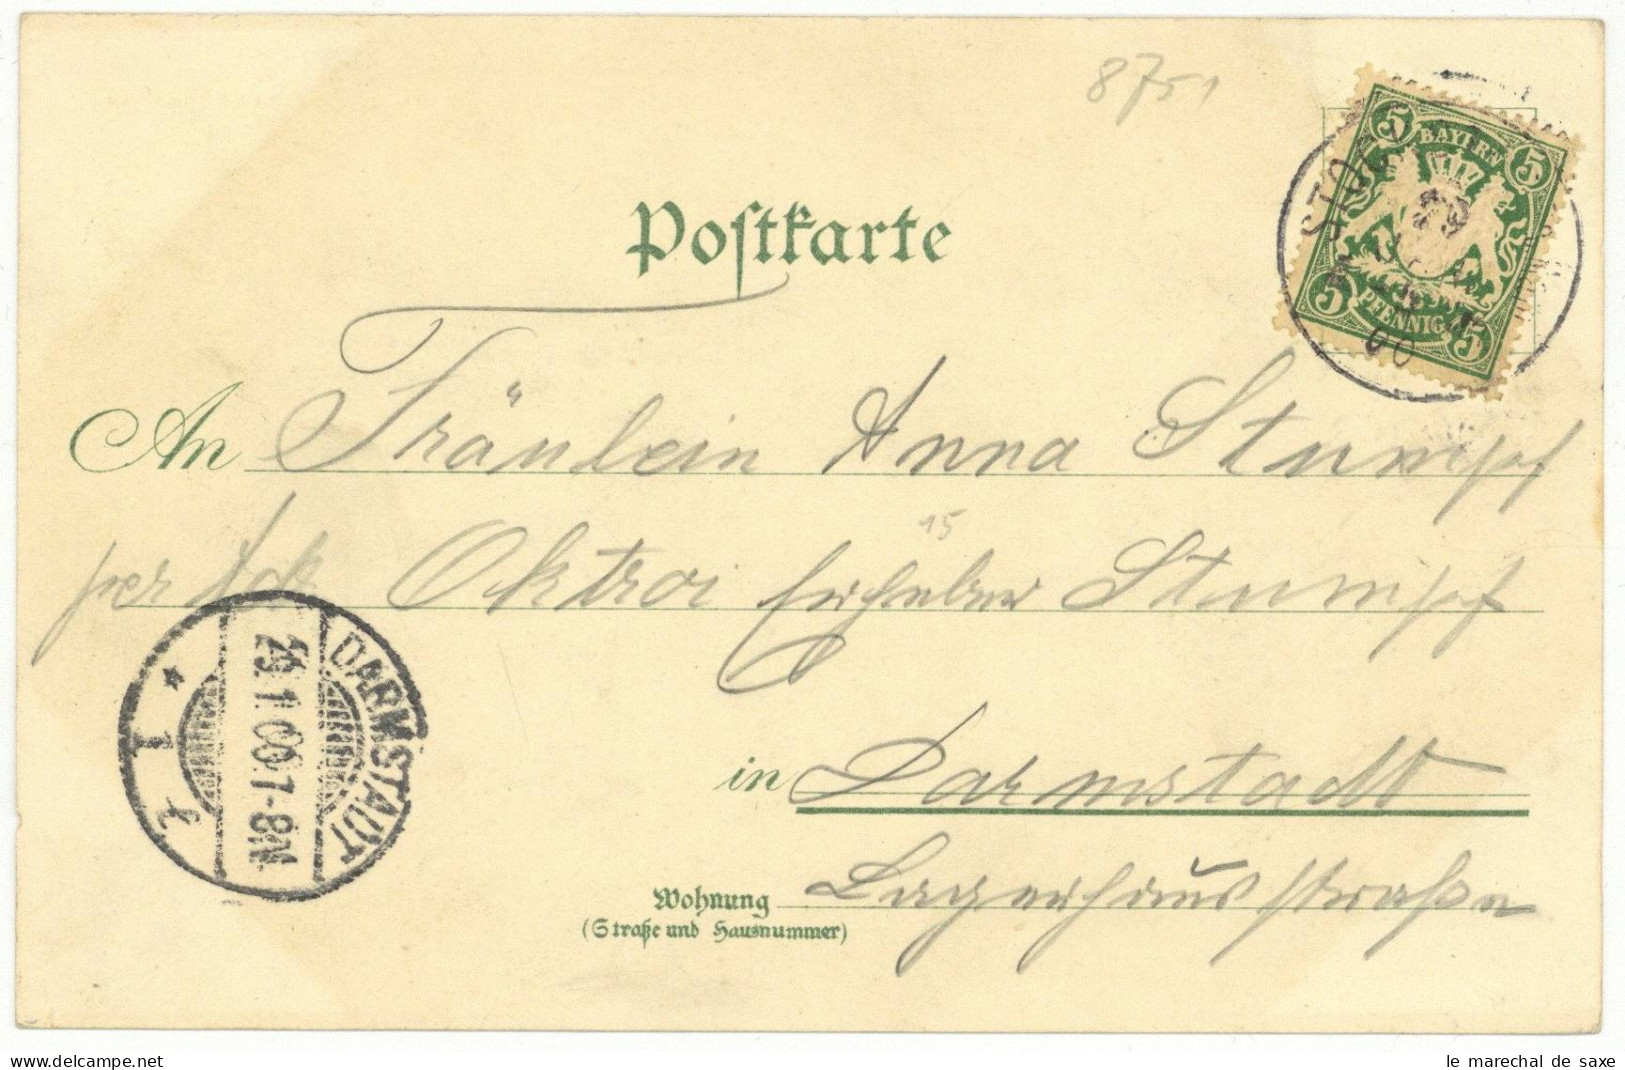 8751
Postkarte
5 BAYERN 5
5 PFENNIG 5
An Fräulein Anna Stumpf
15
per Adr. Oktroi Erheber Stumpf
DARMSTADT
29.1.00.7-8N.
1
in Darmstadt
Wohnung
(Straße und Hausnummer)
Lagerhausstraßen
le marechal de saxe
www.delcampe.net